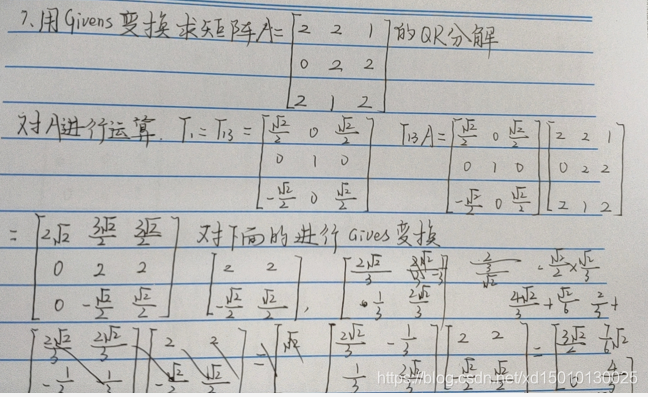 7. 用Givens变换求矩阵A= [2 2 1; 0 2 2; 2 1 2] 的QR分解
对A进行运算. T₁=T₁₃= [√2/2 0 √2/2; 0 1 0; -√2/2 0 √2/2] T₁₃A= [√2/2 0 √2/2; 0 1 0; -√2/2 0 √2/2] [2 2 1; 0 2 2; 2 1 2]
= [2√2 3√2/2 3√2/2; 0 2 2; 0 -√2/2 √2/2] 对下面的进行Gives变换
[2 2; -√2/2 √2/2],
[2√2/3 -1/3; 1/3 2√2/3] [2 2; -√2/2 √2/2] = [3√2/2 7/6√2; 0 4/3]
https://blog.csdn.net/xd15010130025